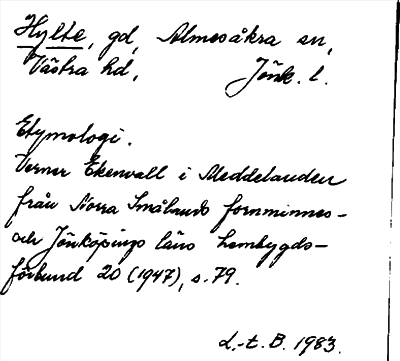 Hylte, gd, Almesåkra sn,
Västra hd, Jönk. l.
Etymologi.
Verner Ekenvall i Meddelanden
från Norra Smålands fornminnes-
och Jönköpings läns hembygds-
förbund 20 (1947), s. 79.
L.-t. B. 1983.